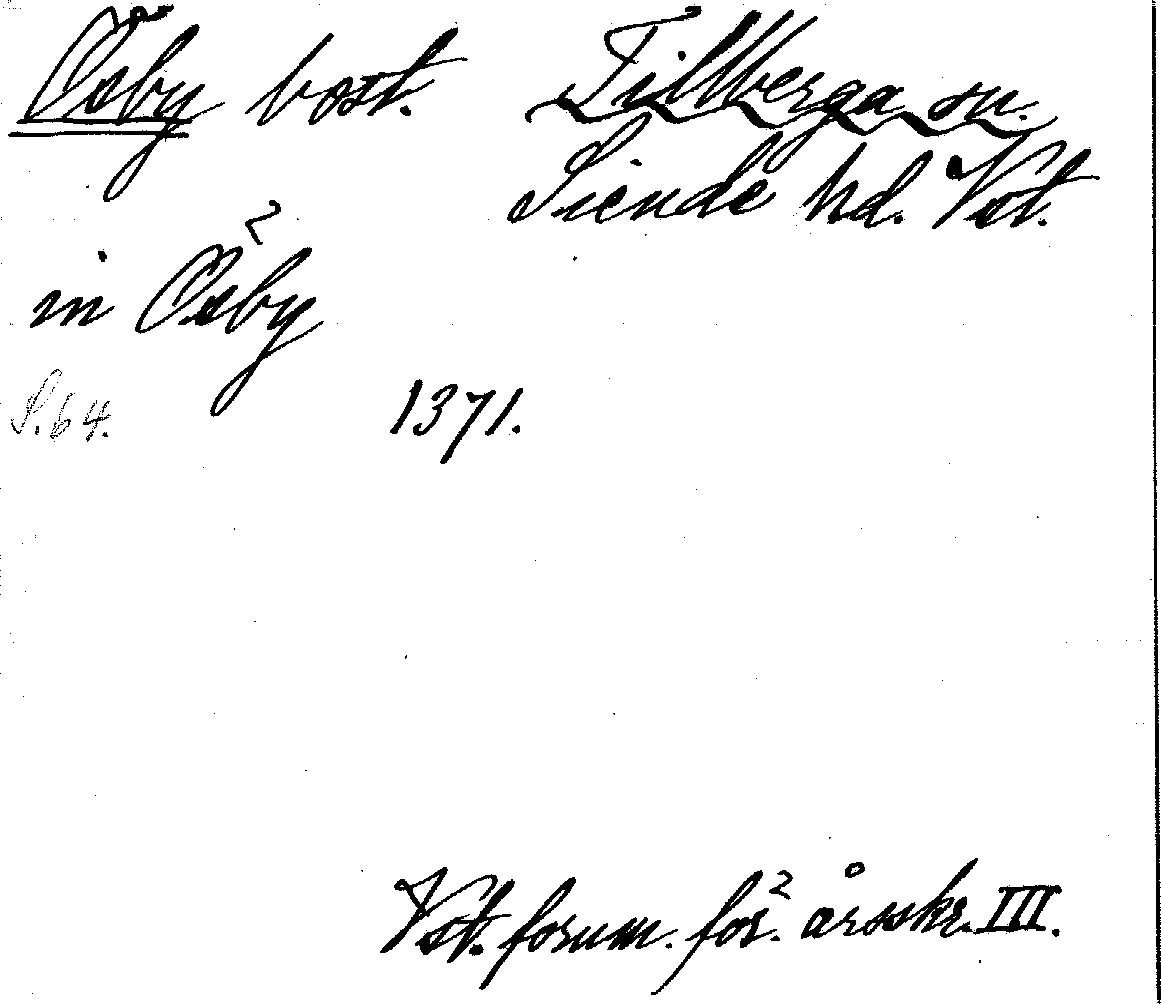 Ösby bost. Tillberga sn.
Siende hd. Vst.
in Ösby
S. 64. 1371.
Vst. fornm. för. årsskr. III.